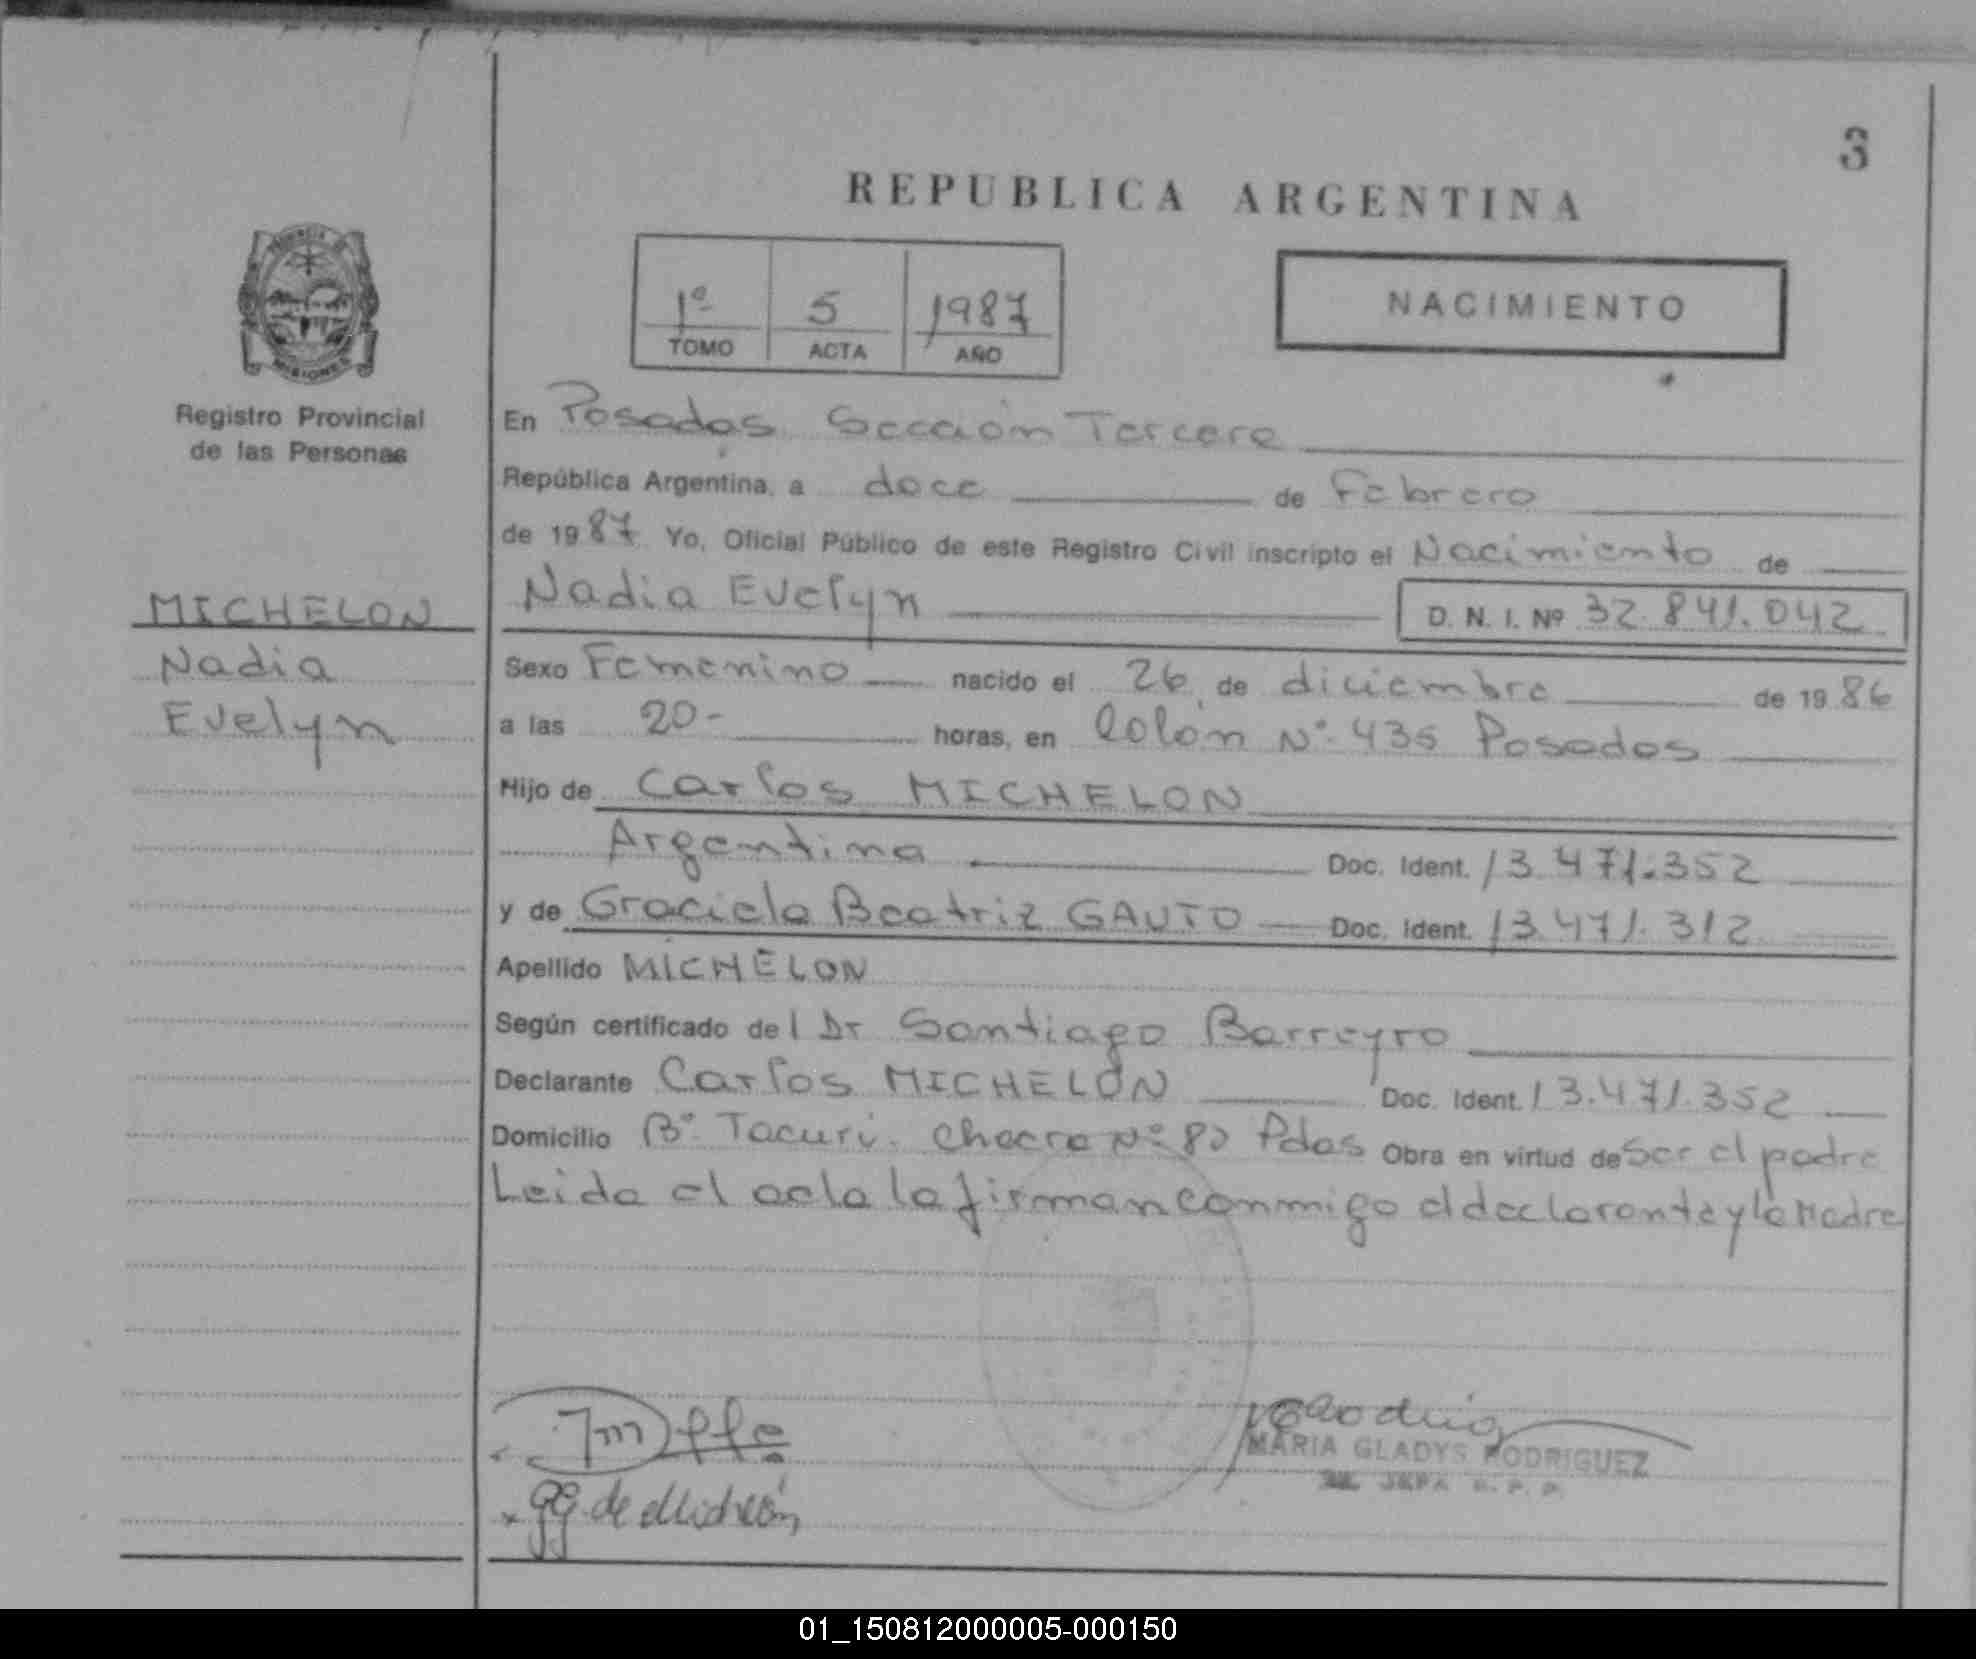 3
REPUBLICA ARGENTINA
PROVINCIA DE
MISIONES
Registro Provincial
de las Personas
1º 5 1987
TOMO ACTA AÑO
NACIMIENTO
MICHELON
Nadia
Evelyn
En Posadas Sección Tercera
República Argentina, a doce de Febrero
de 1987 Yo, Oficial Público de este Registro Civil inscripto el Nacimiento de
Nadia Evelyn D. N. I. Nº 32.841.042
Sexo Femenino nacido el 26 de diciembre de 1986
a las 20- horas, en Colón Nº 435 Posadas
Hijo de Carlos MICHELON
Argentina Doc. Ident. 13.471.352
y de Graciela Beatriz GAUTO Doc. Ident. 13.471.312
Apellido MICHELON
Según certificado del Dr Santiago Barreyro
Declarante Carlos MICHELON Doc. Ident. 13.471.352
Domicilio Bº Tacurú. Chacra Nº 80 Pdas Obra en virtud de Ser el padre
Leida el acta la firman conmigo el declarante y la Madre
GG. de Michelón
MARIA GLADYS RODRIGUEZ
JEFA R. P. P.
01_150812000005-000150